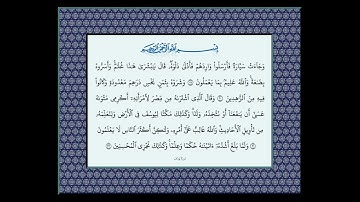 بِسْمِ اللَّهِ الرَّحْمَٰنِ الرَّحِيمِ
وَجَاءَتْ سَيَّارَةٌ فَأَرْسَلُوا وَارِدَهُمْ فَأَدْلَىٰ دَلْوَهُ قَالَ يَا بُشْرَىٰ هَٰذَا غُلَامٌ وَأَسَرُّوهُ
بِضَاعَةً وَاللَّهُ عَلِيمٌ بِمَا يَعْمَلُونَ وَشَرَوْهُ بِثَمَنٍ بَخْسٍ دَرَاهِمَ مَعْدُودَةٍ وَكَانُوا
فِيهِ مِنَ الزَّاهِدِينَ وَقَالَ الَّذِي اشْتَرَاهُ مِنْ مِصْرَ لِامْرَأَتِهِ أَكْرِمِي مَثْوَاهُ
عَسَىٰ أَنْ يَنْفَعَنَا أَوْ نَتَّخِذَهُ وَلَدًا وَكَذَٰلِكَ مَكَّنَّا لِيُوسُفَ فِي الْأَرْضِ وَلِنُعَلِّمَهُ
مِنْ تَأْوِيلِ الْأَحَادِيثِ وَاللَّهُ غَالِبٌ عَلَىٰ أَمْرِهِ وَلَٰكِنَّ أَكْثَرَ النَّاسِ لَا يَعْلَمُونَ
وَلَمَّا بَلَغَ أَشُدَّهُ آتَيْنَاهُ حُكْمًا وَعِلْمًا وَكَذَٰلِكَ نَجْزِي الْمُحْسِنِينَ